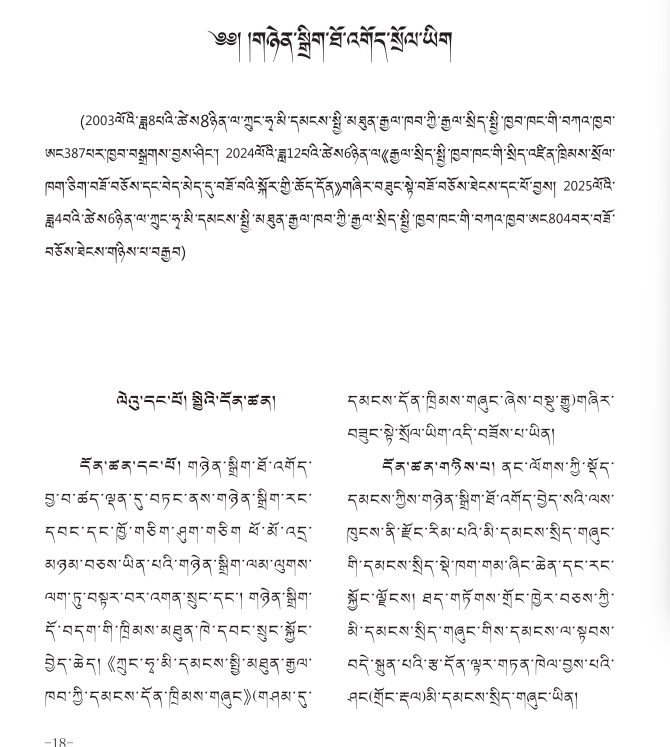 ༄༅། །གཉེན་སྒྲིག་ཐོ་འགོད་སྲོལ་ཡིག
(2003ལོའི་ཟླ8པའི་ཚེས8ཉིན་ལ་ཀྲུང་ཧྭ་མི་དམངས་སྤྱི་མཐུན་རྒྱལ་ཁབ་ཀྱི་རྒྱལ་སྲིད་སྤྱི་ཁྱབ་ཁང་གི་བཀའ་ཁྱབ་
ཨང387པར་ཁྱབ་བསྒྲགས་བྱས་ཤིང་། 2024ལོའི་ཟླ12པའི་ཚེས6ཉིན་ལ《རྒྱལ་སྲིད་སྤྱི་ཁྱབ་ཁང་གི་སྲིད་འཛིན་ཁྲིམས་སྲོལ་
ཁག་ཅིག་བཟོ་བཅོས་དང་མེད་དུ་བཟོ་བའི་སྐོར་གྱི་ཆོད་དོན》གཞིར་བཟུང་སྟེ་བཟོ་བཅོས་ཐེངས་དང་པོ་བྱས། 2025ལོའི་
ཟླ4བའི་ཚེས6ཉིན་ལ་ཀྲུང་ཧྭ་མི་དམངས་སྤྱི་མཐུན་རྒྱལ་ཁབ་ཀྱི་རྒྱལ་སྲིད་སྤྱི་ཁྱབ་ཁང་གི་བཀའ་ཁྱབ་ཨང804བར་བཟོ་
བཅོས་ཐེངས་གཉིས་པ་བརྒྱབ)
ལེའུ་དང་པོ། སྤྱིའི་དོན་ཚན།
དོན་ཚན་དང་པོ། གཉེན་སྒྲིག་ཐོ་འགོད་
བྱ་བ་ཚད་ལྡན་དུ་བཏང་ནས་གཉེན་སྒྲིག་རང་
དབང་དང་ཁྱོ་གཅིག་ཤུག་གཅིག ཕོ་མོ་འདྲ་
མཉམ་བཅས་ཡིན་པའི་གཉེན་སྒྲིག་ལམ་ལུགས་
ལག་ཏུ་བསྟར་བར་འགན་སྲུང་དང་། གཉེན་སྒྲིག་
དོ་བདག་གི་ཁྲིམས་མཐུན་ཁེ་དབང་སྲུང་སྐྱོང་
བྱེད་ཆེད། 《ཀྲུང་ཧྭ་མི་དམངས་སྤྱི་མཐུན་རྒྱལ་
ཁབ་ཀྱི་དམངས་དོན་ཁྲིམས་གཞུང》(གཤམ་དུ་
དམངས་དོན་ཁྲིམས་གཞུང་ཞེས་བསྡུ་རྒྱུ)གཞིར་
བཟུང་སྟེ་སྲོལ་ཡིག་འདི་བཟོས་པ་ཡིན།
དོན་ཚན་གཉིས་པ། ནང་ལོགས་ཀྱི་སྡོད་
དམངས་ཀྱིས་གཉེན་སྒྲིག་ཐོ་འགོད་བྱེད་སའི་ལས་
ཁུངས་ནི་རྫོང་རིམ་པའི་མི་དམངས་སྲིད་གཞུང་
གི་དམངས་སྲིད་སྡེ་ཁག་གམ་ཞིང་ཆེན་དང་རང་
སྐྱོང་ལྗོངས། ཐད་གཏོགས་གྲོང་ཁྱེར་བཅས་ཀྱི་
མི་དམངས་སྲིད་གཞུང་གིས་དམངས་ལ་སྟབས་
བདེ་སྐྲུན་པའི་རྩ་དོན་ལྟར་གཏན་ཁེལ་བྱས་པའི་
ཤང(གྲོང་རྡལ)མི་དམངས་སྲིད་གཞུང་ཡིན།
-18-